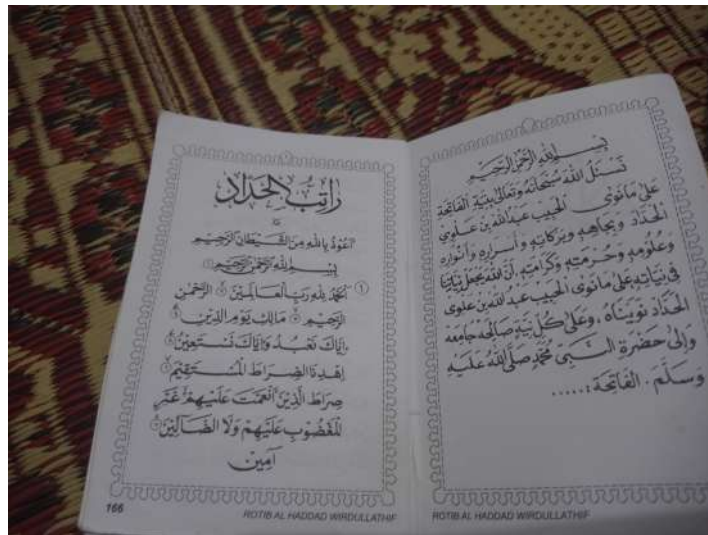 بِسْمِ اللهِ الرَّحْمٰنِ الرَّحِيْمِ
نَسْئَلُ اللهَ سُبْحَانَهُ وَتَعَالٰى بِنِيَّةِ الْفَاتِحَةِ
عَلٰى مَانَوٰى الْحَبِيْبُ عَبْدُ اللهِ بْنُ عَلَوِي
الْحَدَّادُ وَبِجَاهِهِ وَبَرَكَاتِهِ وَأَسْرَارِهِ وَأَنْوَارِهِ
وَعُلُوْمِهِ وَحُرْمَتِهِ وَكَرَامَتِهِ، أَنَّ اللهَ يَجْعَلُ نِيَّاتِنَا
فِي نِيَّاتِهِ عَلٰى مَانَوٰى الْحَبِيْبُ عَبْدُ اللهِ بْنُ عَلَوِى
الْحَدَّادُ نَوَيْنَاهُ، وَعَلٰى كُلِّ نِيَّةٍ صَالِحَةٍ جَامِعَةٍ
وَإِلٰى حَضْرَةِ النَّبِيِّ مُحَمَّدٍ صَلَّى اللهُ عَلَيْهِ
وَسَلَّمَ. الْفَاتِحَةَ :.....
ROTIB AL HADDAD WIRDULLATHIF
رَاتِبُ الْحَدَّادِ
أَعُوْذُ بِاللهِ مِنَ الشَّيْطَانِ الرَّجِيْمِ
بِسْمِ اللهِ الرَّحْمٰنِ الرَّحِيْمِ
١ اَلْحَمْدُ لِلهِ رَبِّ الْعَالَمِيْنَ الرَّحْمٰنِ
الرَّحِيْمِ مَالِكِ يَوْمِ الدِّيْنِ
اِيَّاكَ نَعْبُدُ وَاِيَّاكَ نَسْتَعِيْنُ
اِهْدِنَا الصِّرَاطَ الْمُسْتَقِيْمَ
صِرَاطَ الَّذِيْنَ أَنْعَمْتَ عَلَيْهِمْ غَيْرِ
الْمَغْضُوْبِ عَلَيْهِمْ وَلَا الضَّالِّيْنَ
آمِيْن
166
ROTIB AL HADDAD WIRDULLATHIF